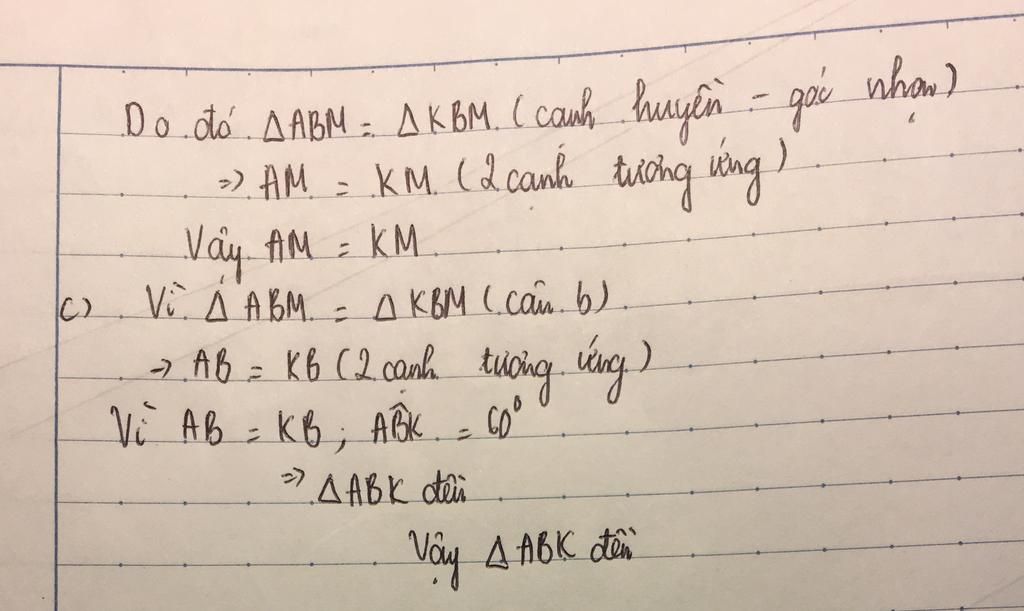 Do đó ΔABM = ΔKBM (cạnh huyền - góc nhọn)
=> AM = KM (2 cạnh tương ứng)
Vậy AM = KM
c) Vì Δ ABM = Δ KBM (câu b)
-> AB = KB (2 cạnh tương ứng)
Vì AB = KB ; AB̂K = 60⁰
=> ΔABK đều
Vậy ΔABK đều